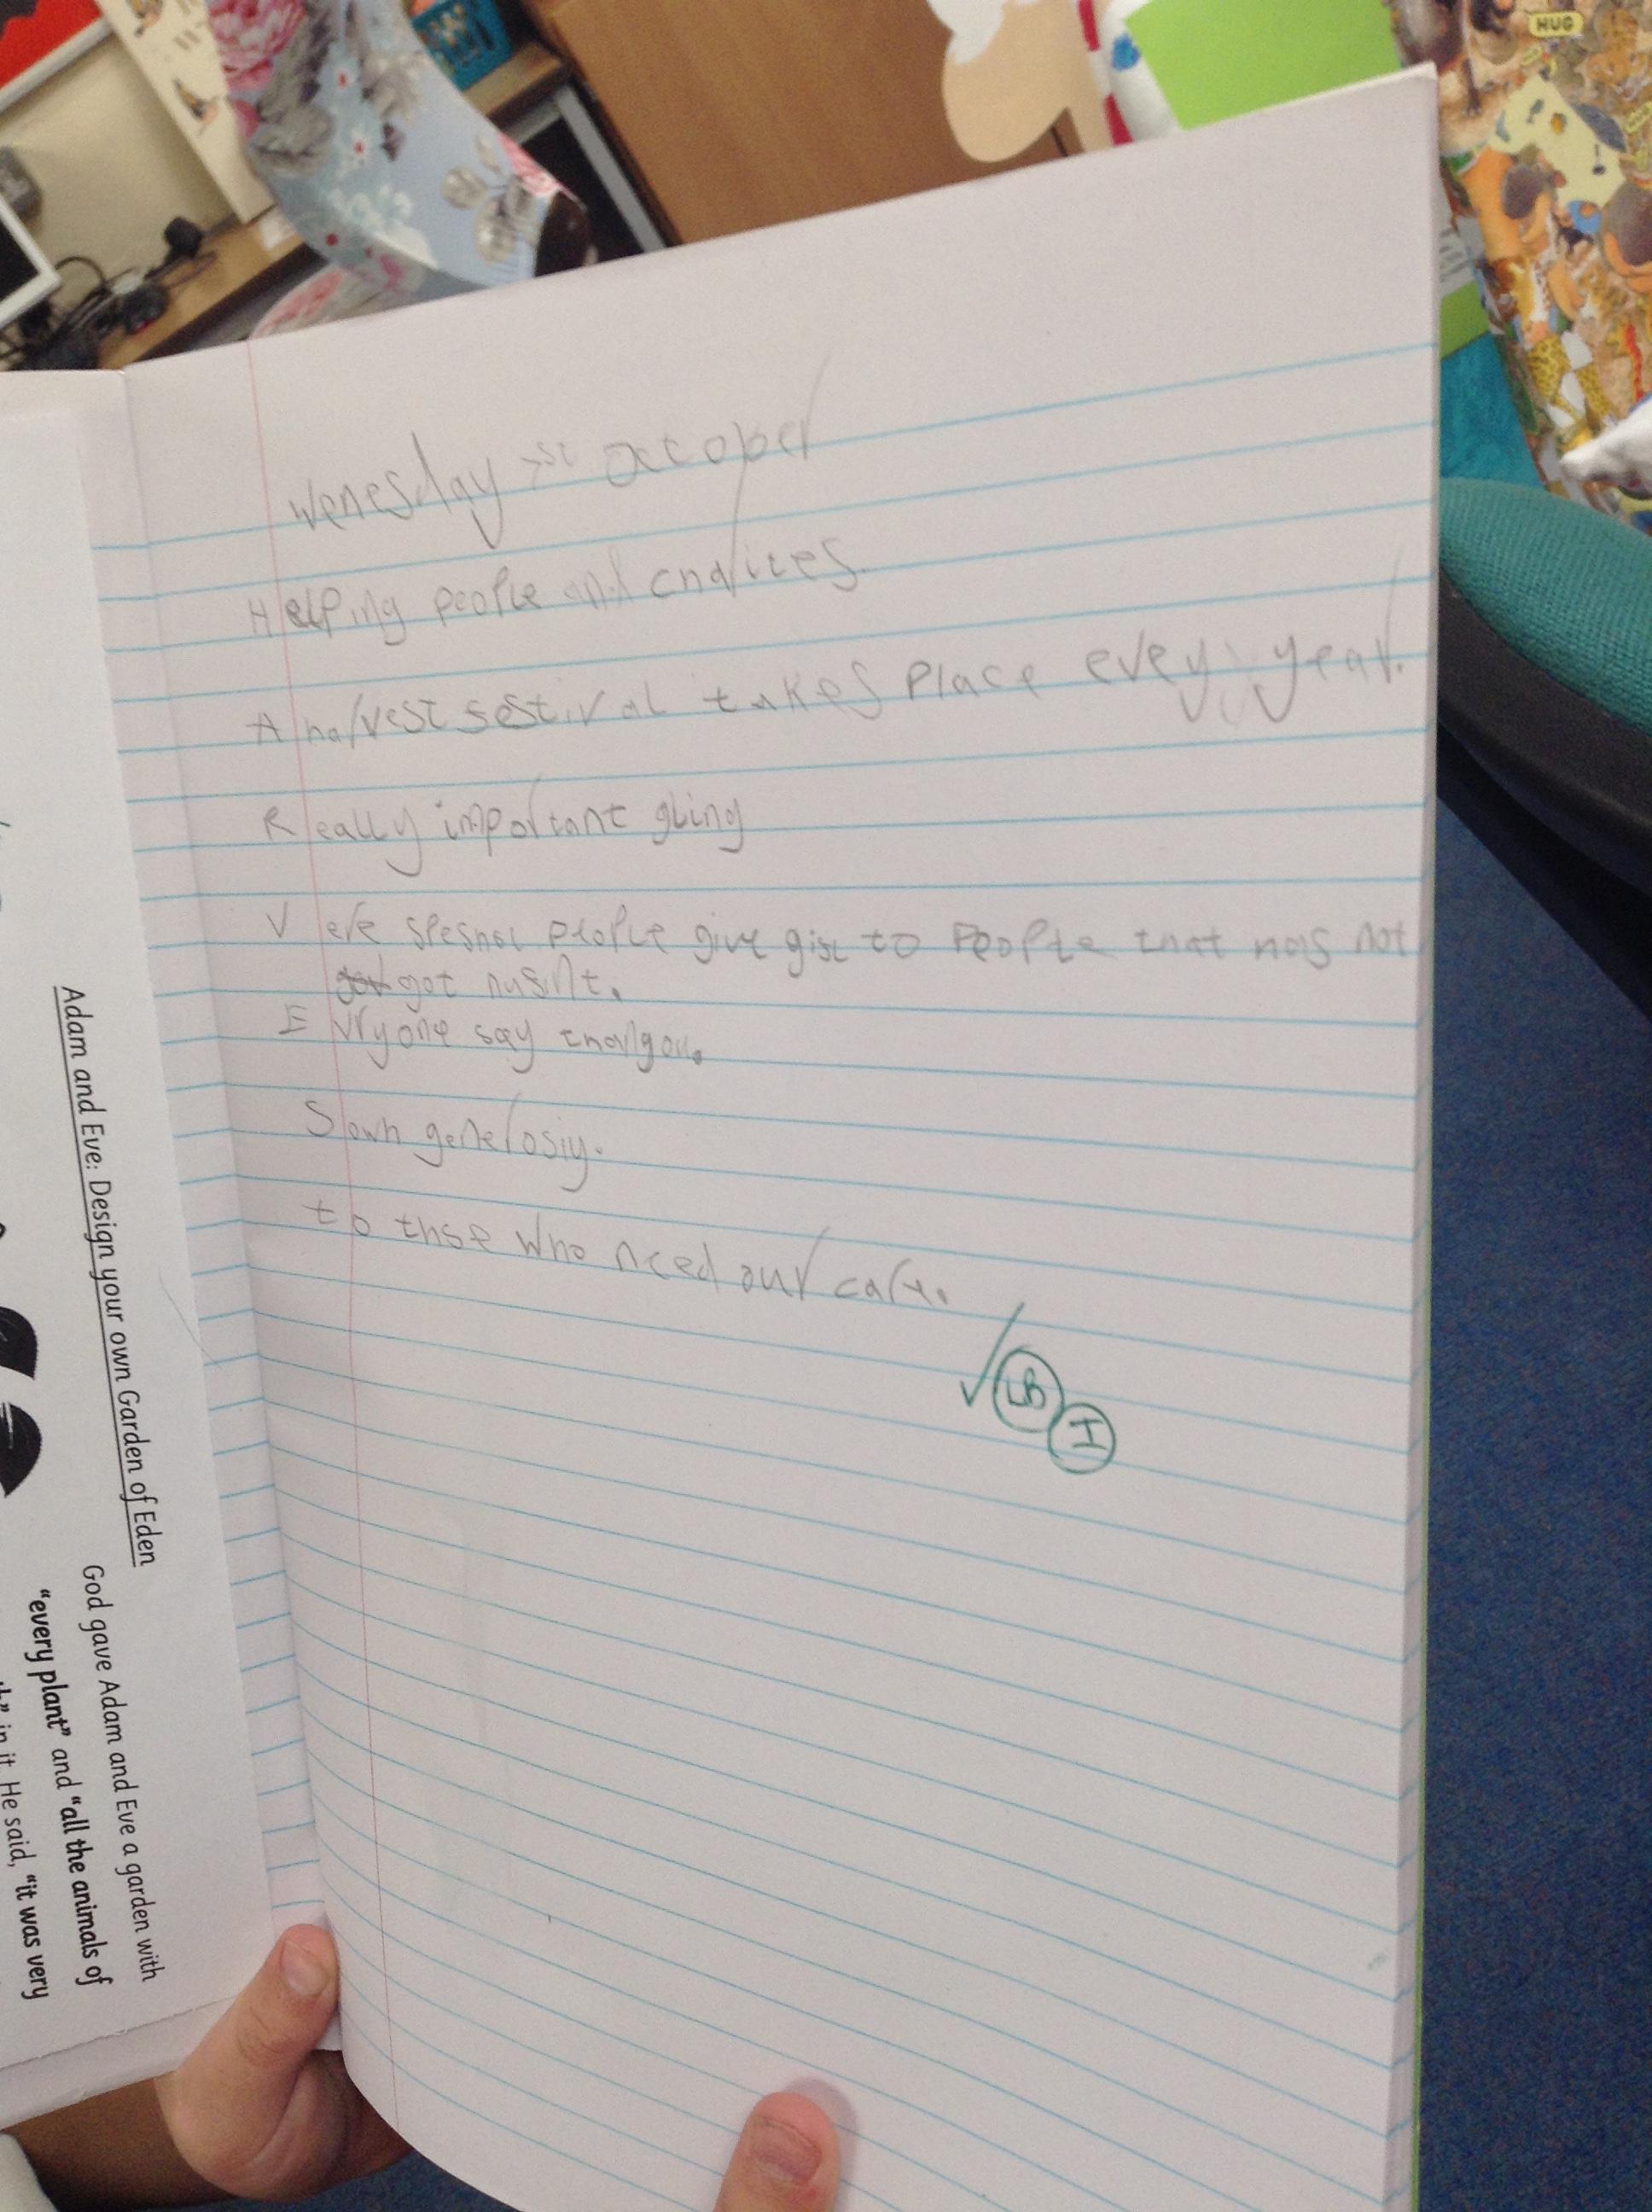 HUG
Wenesday 7st October
Helping people and chaities.
A harvest festival takes place every year.
Really important giving
Vere speshol people give gift to people that has not
got nusint.
Evryone say
Sown generosiy.
to thse who need our care.
LB
I
Adam and Eve: Design your own Garden of Eden
God gave Adam and Eve a garden with
“every plant” and “all the animals of
in it. He said, “it was very